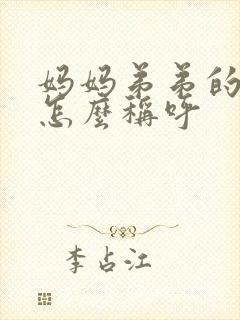 妈妈弟弟的
怎麼稱呼
李占江